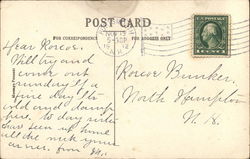 POST CARD
FOR CORRESPONDENCE
FOR ADDRESS ONLY
Dear Roscoe.
Will try and
come out
Sunday if a
fine day. Its
cold and damp
here. to day sister
has been up home
all the week
Roscoe Bunker,
North Hampton
N. H.